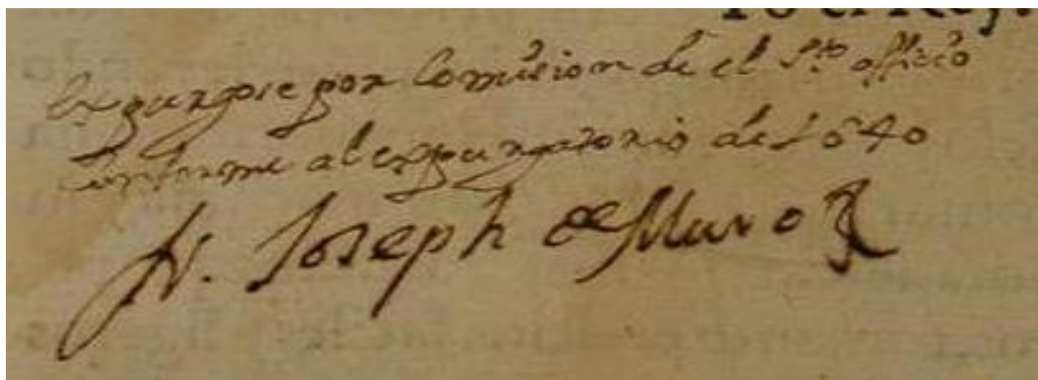 Yo el Rey.
Expurgose por Comission de el S.to officio
Conforme al expurgatorio de 1640
fr. Joseph de